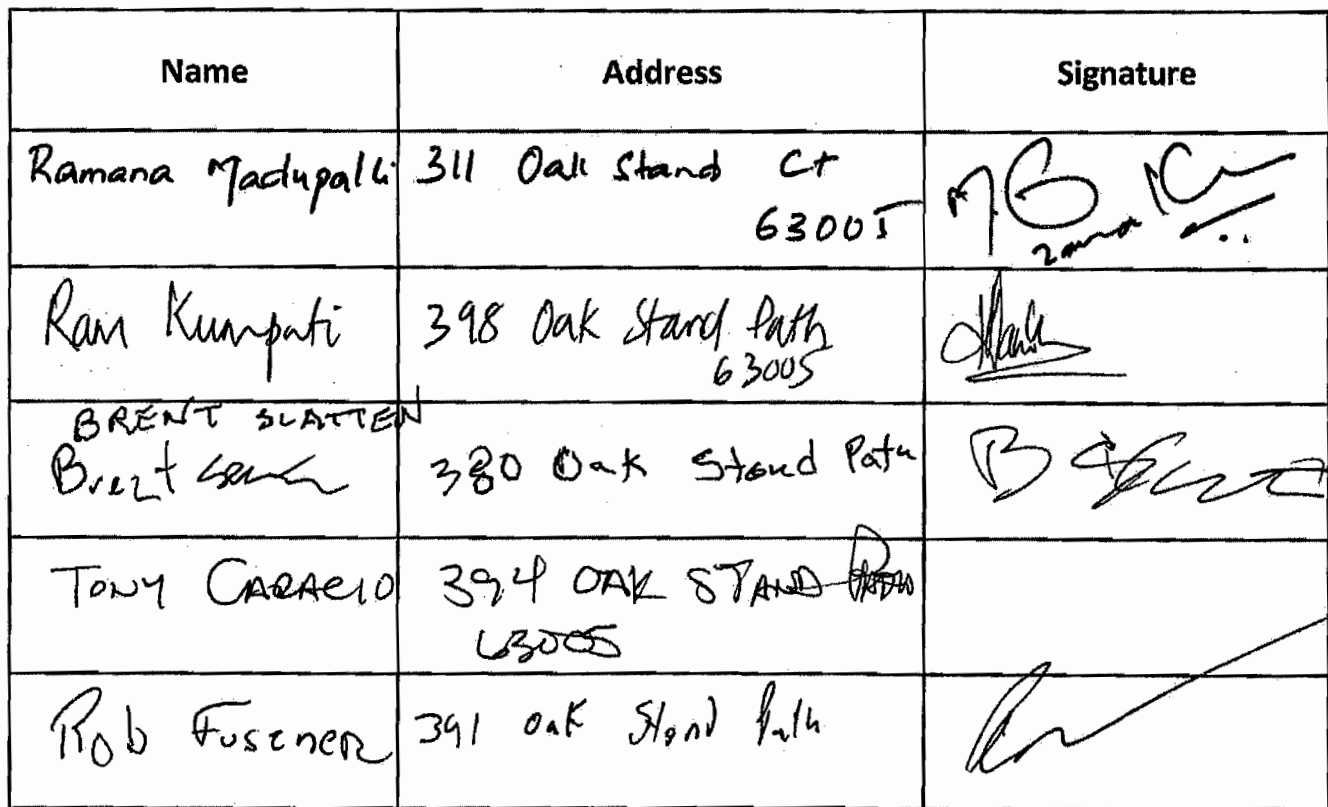 Name Address Signature
Ramana Madupalli 311 Oak Stand Ct
63005
Ram Kumpati 398 Oak Stand Path
63005
BRENT SLATTEN
Brent 380 Oak Stand Path
TONY CARACIO 394 OAK STAND
63005
Rob Fuszner 391 Oak Stand Path